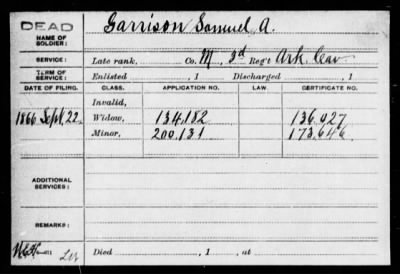 DEAD
NAME OF SOLDIER: Garrison Samuel A.
SERVICE: Late rank, Co. M, 3d Reg't Ark. Cav
TERM OF SERVICE: Enlisted , 1 Discharged , 1
DATE OF FILING. CLASS. APPLICATION NO. LAW. CERTIFICATE NO.
Invalid,
1866 Sept. 22. Widow, 134,182 136.027
Minor, 200.131 173.646
ADDITIONAL SERVICES:
REMARKS:
Died , 1 , at